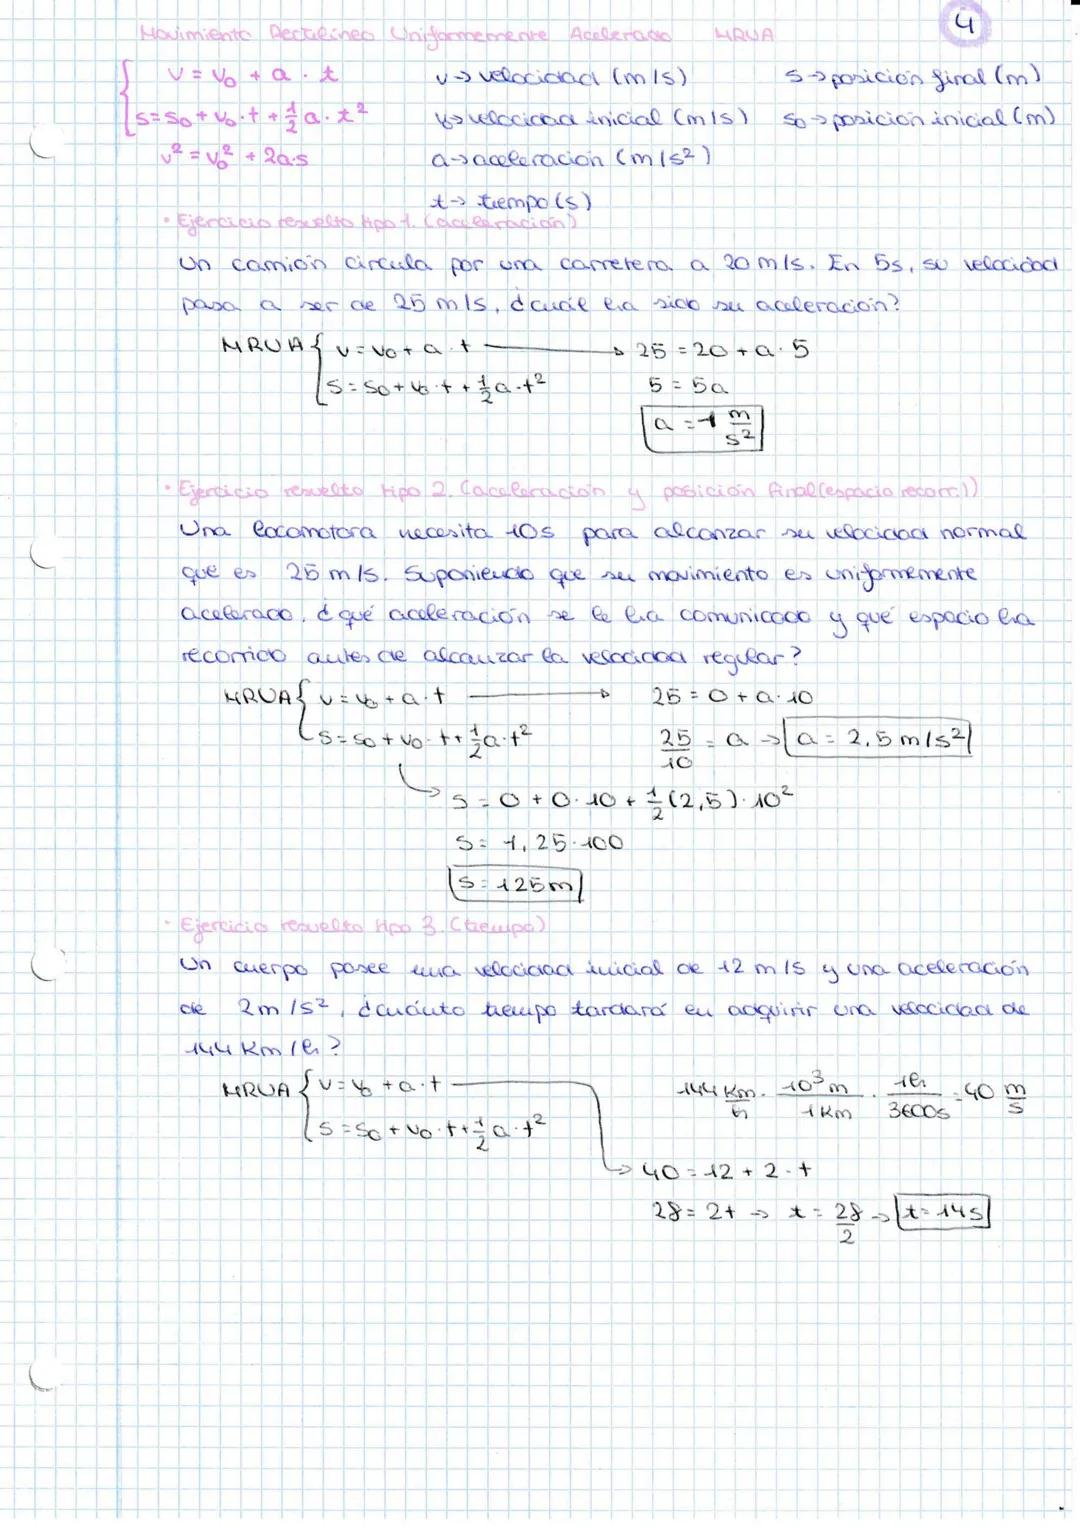 4
Movimiento Rectilíneo Uniformemente Acelerado MRUA
v = v₀ + a · t
v → velocidad (m/s)
s → posición final (m)
s = s₀ + v₀ · t + 1/2 a · t²
v₀ → velocidad inicial (m/s)
s₀ → posición inicial (m)
v² = v₀² + 2a·s
a → aceleración (m/s²)
t → tiempo (s)
• Ejercicio resuelto tipo 1. (aceleración)
Un camión circula por una carretera a 20 m/s. En 5s, su velocidad
pasa a ser de 25 m/s, ¿cuál ha sido su aceleración?
MRUA { v = v₀ + a · t → 25 = 20 + a · 5
s = s₀ + v₀ · t + 1/2 a · t²
5 = 5a
a = 1 m/s²
• Ejercicio resuelto tipo 2. (aceleración y posición final (espacio recorr.))
Una locomotora necesita 10s para alcanzar su velocidad normal
que es 25 m/s. Suponiendo que su movimiento es uniformemente
acelerado, ¿qué aceleración se le ha comunicado y qué espacio ha
recorrido antes de alcanzar la velocidad regular?
MRUA { v = v₀ + a · t → 25 = 0 + a · 10
s = s₀ + v₀ · t + 1/2 a · t²
25/10 = a → a = 2,5 m/s²
s = 0 + 0 · 10 + 1/2 (2,5) · 10²
s = 1,25 · 100
s = 125 m
• Ejercicio resuelto tipo 3. (tiempo)
Un cuerpo posee una velocidad inicial de 12 m/s y una aceleración
de 2 m/s², ¿cuánto tiempo tardará en adquirir una velocidad de
144 Km/h?
MRUA { v = v₀ + a · t
144 Km/h · 10³ m/1 Km · 1h/3600s = 40 m/s
s = s₀ + v₀ · t + 1/2 a · t²
→ 40 = 12 + 2 · t
28 = 2t → t = 28/2 → t = 14s